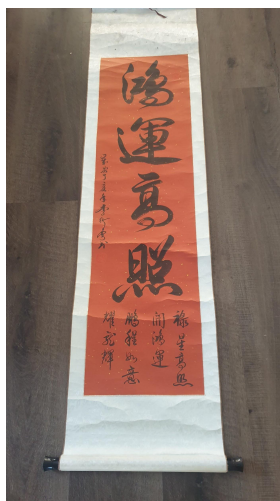 鴻運高照
祿星高照
開鴻運
鵬程如意
耀龍輝